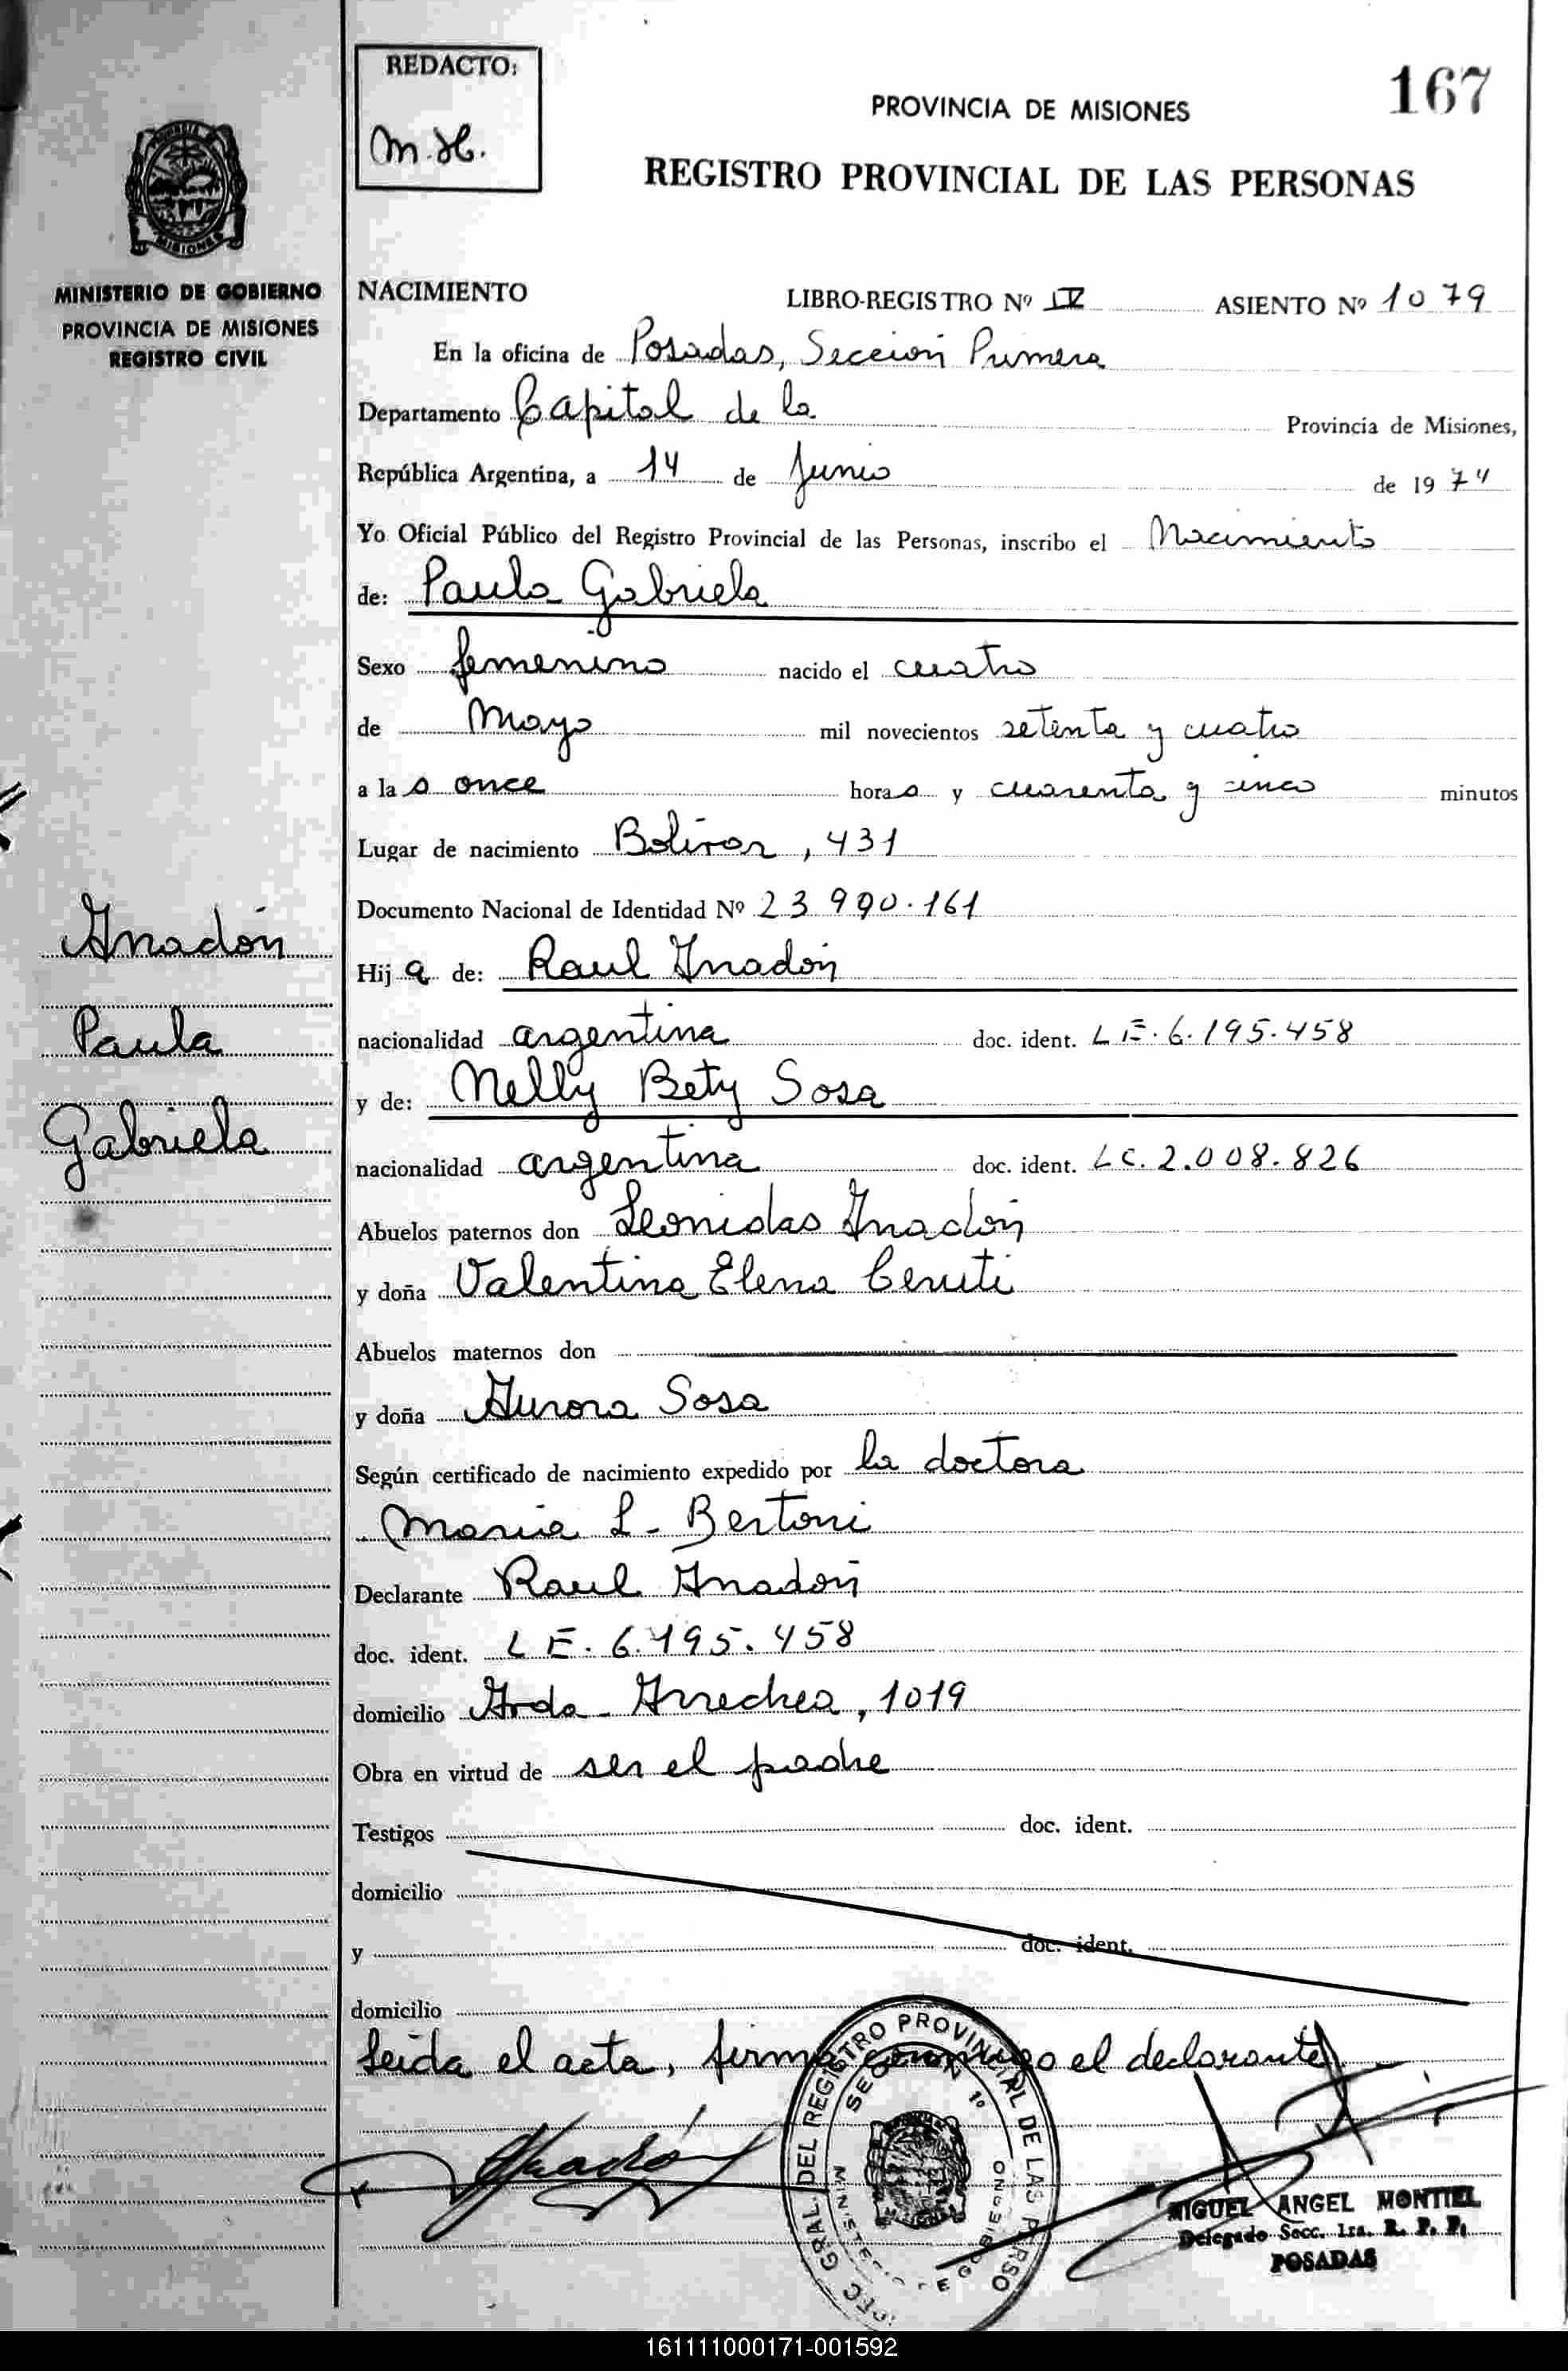 REDACTO:
M.H.
167
PROVINCIA DE MISIONES
REGISTRO PROVINCIAL DE LAS PERSONAS
MINISTERIO DE GOBIERNO
PROVINCIA DE MISIONES
REGISTRO CIVIL
NACIMIENTO LIBRO-REGISTRO Nº IV ASIENTO Nº 1079
En la oficina de Posadas, Sección Primera
Departamento Capital de la Provincia de Misiones,
República Argentina, a 14 de Junio de 1974
Yo Oficial Público del Registro Provincial de las Personas, inscribo el Nacimiento
de: Paula Gabriela
Sexo femenino nacido el cuatro
de Mayo mil novecientos setenta y cuatro
a las once horas y cuarenta y cinco minutos
Lugar de nacimiento Bolivar, 431
Documento Nacional de Identidad Nº 23.990.161
Anadón
Paula
Gabriela
Hija de: Raul Anadón
nacionalidad argentina doc. ident. L E. 6.195.458
y de: Nelly Bety Sosa
nacionalidad argentina doc. ident. LC. 2.008.826
Abuelos paternos don Leonidas Anadón
y doña Valentina Elena Ceruti
Abuelos maternos don
y doña Aurora Sosa
Según certificado de nacimiento expedido por la doctora
Maria L. Bertoni
Declarante Raul Anadón
doc. ident. L E. 6.195.458
domicilio Avda. Arrechea, 1019
Obra en virtud de ser el padre
Testigos doc. ident.
domicilio
y doc. ident.
domicilio
Leida el acta, firma conmigo el declarante
DIREC. GRAL. DEL REGISTRO PROVINCIAL DE LAS PERSO
SECCION 1º
MINISTERIO DE GOBIERNO
Anadón
MIGUEL ANGEL MONTIEL
Delegado Secc. 1ra. R. P. P.
POSADAS
161111000171-001592